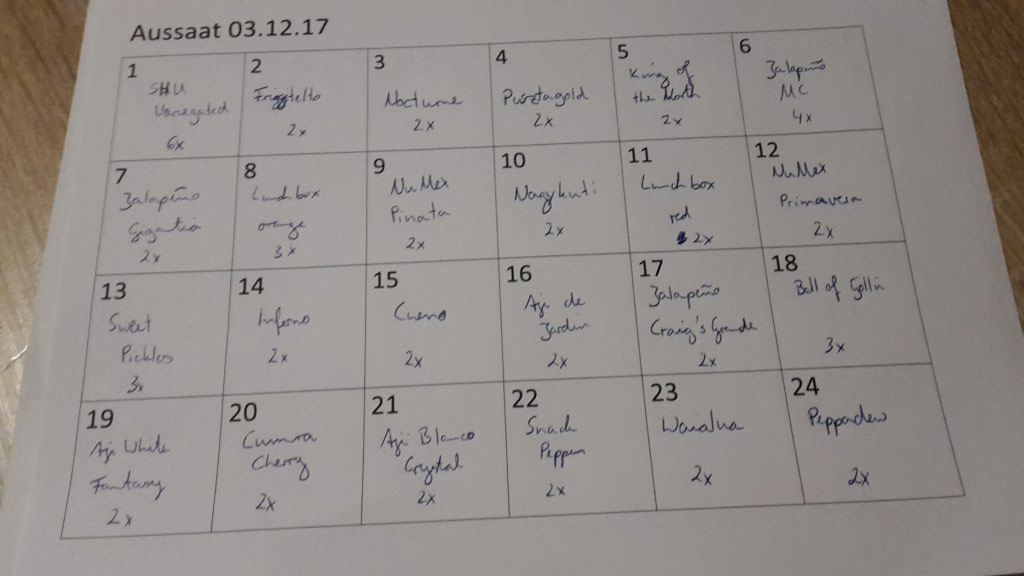 Aussaat 03.12.17
1
SHU
Variegated
6x
2
Friggitello
2x
3
Nocturne
2x
4
Pusztagold
2x
5
King of
the North
2x
6
Jalapeño
MC
4x
7
Jalapeño
Gigantia
2x
8
Lunchbox
orange
3x
9
NuMex
Pinata
2x
10
Nagykuti
2x
11
Lunchbox
red
2x
12
NuMex
Primavera
2x
13
Sweet
Pickles
3x
14
Inferno
2x
15
Cuerno
2x
16
Aji de
Jardin
2x
17
Jalapeño
Craig's Grande
2x
18
Bell of
3x
19
Aji White
Fantasy
2x
20
Cumra
Cherry
2x
21
Aji Blanco
Crystal
2x
22
Snack
Pepper
2x
23
Waialua
2x
24
Peppadew
2x